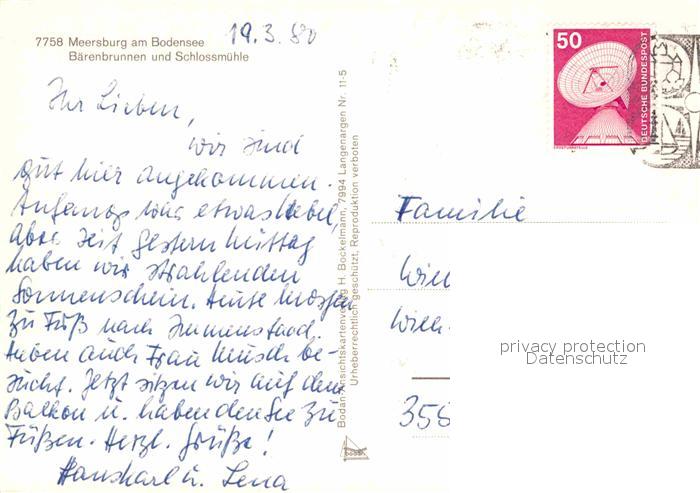 19.3.80
7758 Meersburg am Bodensee
Bärenbrunnen und Schlossmühle
Ihr Lieben,
wir sind
gut hier angekommen.
Anfangs war etwas Nebel,
aber seit gestern Mittag
haben wir strahlenden
Sonnenschein. Heute Morgen
zu Fuß nach Immenstaad,
haben auch Frau be-
sucht. Jetzt sitzen wir auf dem
Balkon u. haben den See zu
Füßen. Herzl. Grüße!
Hanskarl u. Lena
Bodan-Ansichtskartenverlag H. Bockelmann, 7994 Langenargen Nr. 11-5
Urheberrechtlich geschützt, Reproduktion verboten
50
DEUTSCHE BUNDESPOST
ERDFUNKSTELLE
Familie
Wilh
355
privacy protection
Datenschutz